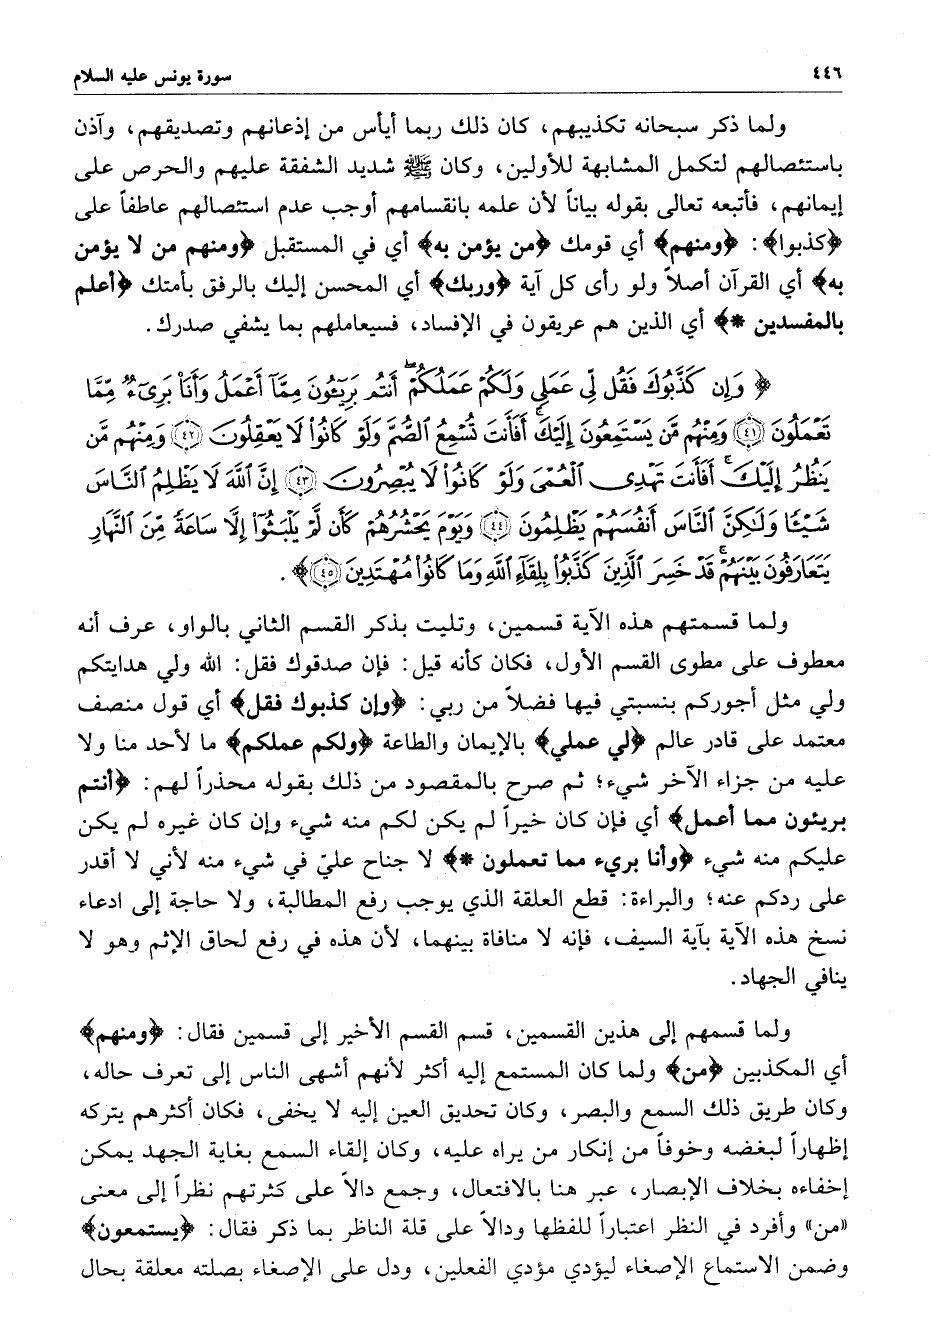 ٤٤٦ سورة يونس عليه السلام
ولما ذكر سبحانه تكذيبهم، كان ذلك ربما أيأس من إذعانهم وتصديقهم، وآذن
باستئصالهم لتكمل المشابهة للأولين، وكان ﷺ شديد الشفقة عليهم والحرص على
إيمانهم، فأتبعه تعالى بقوله بياناً لأن علمه بانقسامهم أوجب عدم استئصالهم عاطفاً على
﴿كذبوا﴾: ﴿ومنهم﴾ أي قومك ﴿من يؤمن به﴾ أي في المستقبل ﴿ومنهم من لا يؤمن
به﴾ أي القرآن أصلاً ولو رأى كل آية ﴿وربك﴾ أي المحسن إليك بالرفق بأمتك ﴿أعلم
بالمفسدين *﴾ أي الذين هم عريقون في الإفساد، فسيعاملهم بما يشفي صدرك.
﴿ وَإِن كَذَّبُوكَ فَقُل لِّي عَمَلِي وَلَكُمْ عَمَلُكُمْ ۖ أَنتُم بَرِيٓـُٔونَ مِمَّآ أَعْمَلُ وَأَنَا۠ بَرِىٓءٌ مِّمَّا
تَعْمَلُونَ ﴿٤١﴾ وَمِنْهُم مَّن يَسْتَمِعُونَ إِلَيْكَ ۚ أَفَأَنتَ تُسْمِعُ ٱلصُّمَّ وَلَوْ كَانُوا۟ لَا يَعْقِلُونَ ﴿٤٢﴾ وَمِنْهُم مَّن
يَنظُرُ إِلَيْكَ ۚ أَفَأَنتَ تَهْدِى ٱلْعُمْىَ وَلَوْ كَانُوا۟ لَا يُبْصِرُونَ ﴿٤٣﴾ إِنَّ ٱللَّهَ لَا يَظْلِمُ ٱلنَّاسَ
شَيْـًٔا وَلَٰكِنَّ ٱلنَّاسَ أَنفُسَهُمْ يَظْلِمُونَ ﴿٤٤﴾ وَيَوْمَ يَحْشُرُهُمْ كَأَن لَّمْ يَلْبَثُوٓا۟ إِلَّا سَاعَةً مِّنَ ٱلنَّهَارِ
يَتَعَارَفُونَ بَيْنَهُمْ ۚ قَدْ خَسِرَ ٱلَّذِينَ كَذَّبُوا۟ بِلِقَآءِ ٱللَّهِ وَمَا كَانُوا۟ مُهْتَدِينَ ﴿٤٥﴾ ﴾.
ولما قسمتهم هذه الآية قسمين، وتليت بذكر القسم الثاني بالواو، عرف أنه
معطوف على مطوى القسم الأول، فكان كأنه قيل: فإن صدقوك فقل: الله ولي هدايتكم
ولي مثل أجوركم بنسبتي فيها فضلاً من ربي: ﴿وإن كذبوك فقل﴾ أي قول منصف
معتمد على قادر عالم ﴿لي عملي﴾ بالإيمان والطاعة ﴿ولكم عملكم﴾ ما لأحد منا ولا
عليه من جزاء الآخر شيء؛ ثم صرح بالمقصود من ذلك بقوله محذراً لهم: ﴿أنتم
بريئون مما أعمل﴾ أي فإن كان خيراً لم يكن لكم منه شيء وإن كان غيره لم يكن
عليكم منه شيء ﴿وأنا بريء مما تعملون *﴾ لا جناح عليّ في شيء منه لأني لا أقدر
على ردكم عنه؛ والبراءة: قطع العلقة الذي يوجب رفع المطالبة، ولا حاجة إلى ادعاء
نسخ هذه الآية بآية السيف، فإنه لا منافاة بينهما، لأن هذه في رفع لحاق الإثم وهو لا
ينافي الجهاد.
ولما قسمهم إلى هذين القسمين، قسم القسم الأخير إلى قسمين فقال: ﴿ومنهم﴾
أي المكذبين ﴿من﴾ ولما كان المستمع إليه أكثر لأنهم أشهى الناس إلى تعرف حاله،
وكان طريق ذلك السمع والبصر، وكان تحديق العين إليه لا يخفى، فكان أكثرهم يتركه
إظهاراً لبغضه وخوفاً من إنكار من يراه عليه، وكان إلقاء السمع بغاية الجهد يمكن
إخفاءه بخلاف الإبصار، عبر هنا بالافتعال، وجمع دالاً على كثرتهم نظراً إلى معنى
«من» وأفرد في النظر اعتباراً للفظها ودالاً على قلة الناظر بما ذكر فقال: ﴿يستمعون﴾
وضمن الاستماع الإصغاء ليؤدي مؤدي الفعلين، ودل على الإصغاء بصلته معلقة بحال